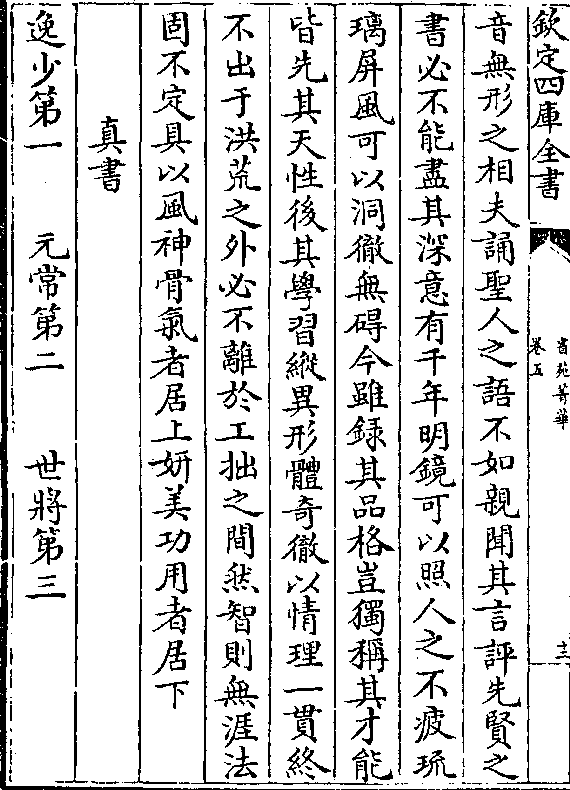 欽定四庫全書
書苑菁華
卷五
十三
音無形之相夫誦聖人之語不如親聞其言評先賢之
書必不能盡其深意有千年明鏡可以照人之不疲琉
璃屏風可以洞徹無碍今雖録其品格豈獨稱其才能
皆先其天性後其學習縱異形體奇徹以情理一貫終
不出于洪荒之外必不離於工拙之間然智則無涯法
固不定具以風神骨氣者居上妍美功用者居下
真書
逸少第一 元常第二 世將第三